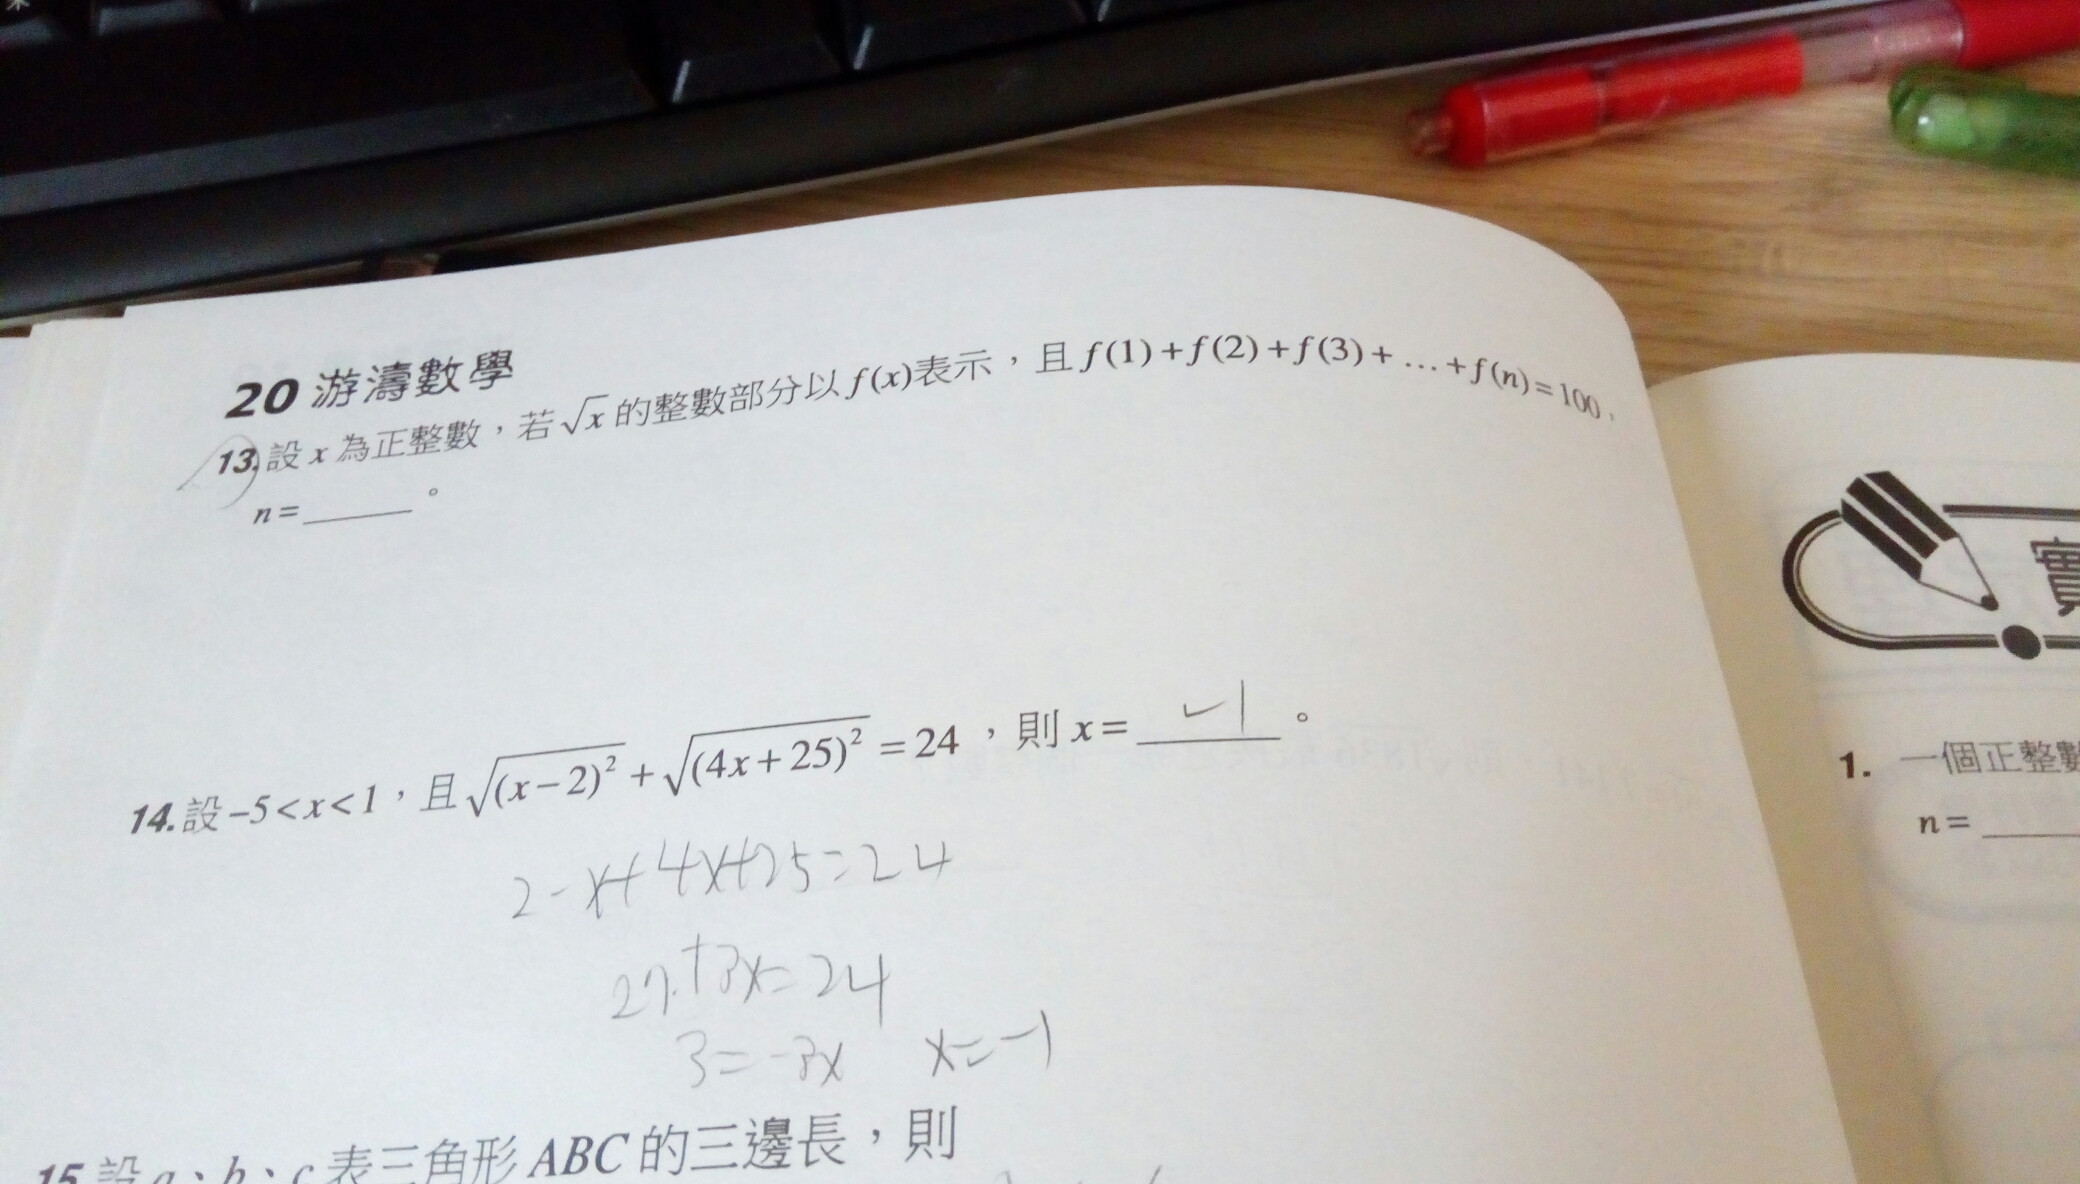 20 游濤數學
13. 設 x 為正整數，若 √x 的整數部分以 f(x)表示，且 f(1)+f(2)+f(3)+…+f(n)=100，
n=______。
14. 設 –5<x<1，且 √(x–2)² + √(4x+25)² =24，則 x= -1 。
2-x+4x+25=24
27+3x=24
3=-3x x=-1
15 設 a、b、c 表三角形 ABC 的三邊長，則
實
1. 一個正整數
n=